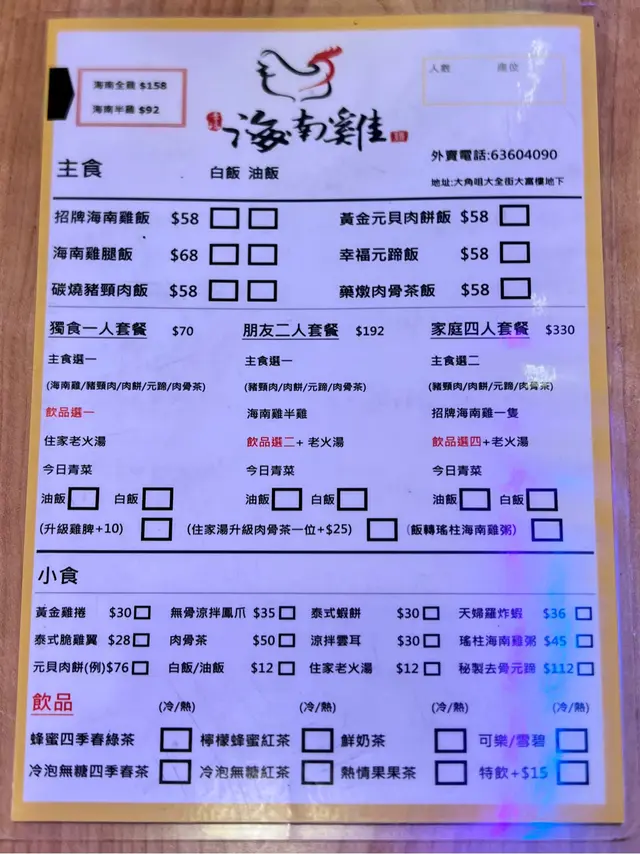 海南全雞 $158
海南半雞 $92
海南雞
人數 座位
外賣電話:63604090
地址:大角咀大全街大富樓地下
主食 白飯 油飯
招牌海南雞飯 $58 黃金元貝肉餅飯 $58
海南雞腿飯 $68 幸福元蹄飯 $58
碳燒豬頸肉飯 $58 藥燉肉骨茶飯 $58
獨食一人套餐 $70 朋友二人套餐 $192 家庭四人套餐 $330
主食選一 主食選一 主食選二
(海南雞/豬頸肉/肉餅/元蹄/肉骨茶) (豬頸肉/肉餅/元蹄/肉骨茶) (豬頸肉/肉餅/元蹄/肉骨茶)
飲品選一 海南雞半雞 招牌海南雞一隻
住家老火湯 飲品選二+ 老火湯 飲品選四+老火湯
今日青菜 今日青菜 今日青菜
油飯 白飯 油飯 白飯 油飯 白飯
(升級雞脾+10) (住家湯升級肉骨茶一位+$25) (飯轉瑤柱海南雞粥)
小食
黃金雞捲 $30 無骨涼拌鳳爪 $35 泰式蝦餅 $30 天婦羅炸蝦 $36
泰式脆雞翼 $28 肉骨茶 $50 涼拌雲耳 $30 瑤柱海南雞粥 $45
元貝肉餅(例)$76 白飯/油飯 $12 住家老火湯 $12 秘製去骨元蹄 $112
飲品 (冷/熱) (冷/熱) (冷/熱) (冷/熱)
蜂蜜四季春綠茶 檸檬蜂蜜紅茶 鮮奶茶 可樂/雪碧
冷泡無糖四季春茶 冷泡無糖紅茶 熱情果果茶 特飲+$15